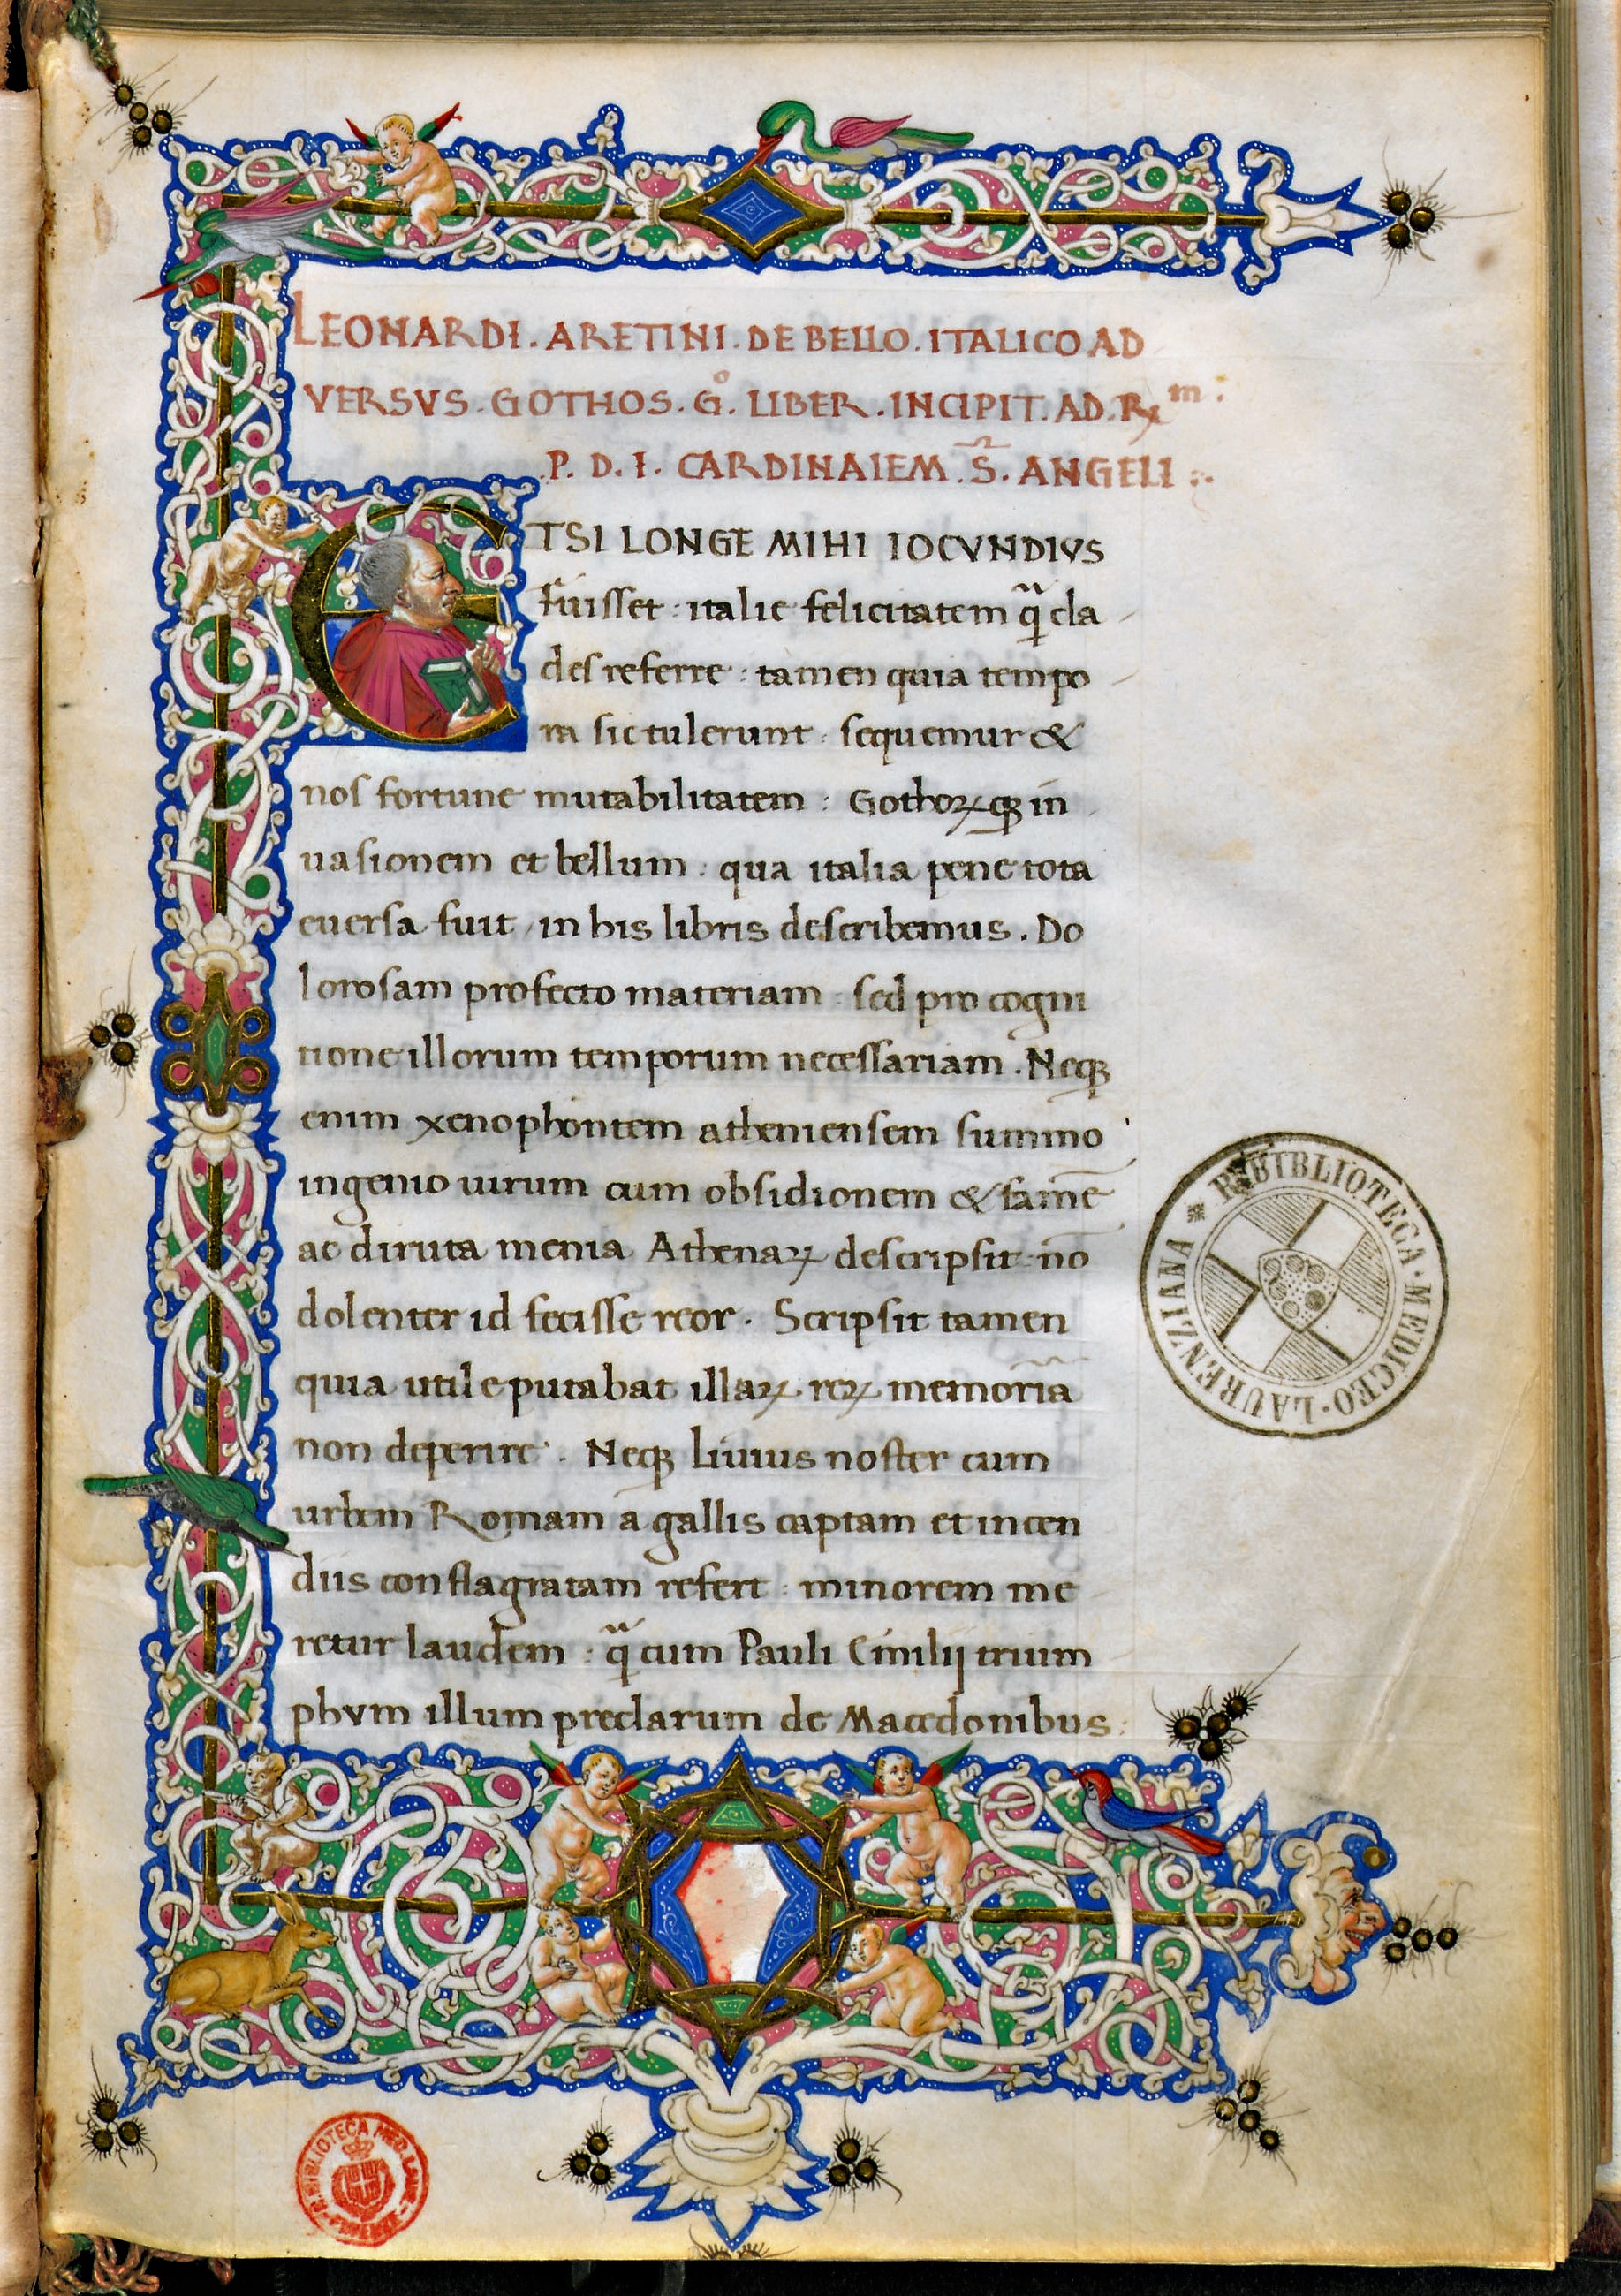 LEONARDI . ARETINI . DE BELLO . ITALICO AD
VERSVS . GOTHOS . G°. LIBER . INCIPIT . AD . R. m .
P . D . I . CARDINALEM . S̄ . ANGELI :
ETSI LONGE MIHI IOCVNDIVS
fuisset : italie felicitatem q̃ cla
des referre : tamen quia tempo
ra sic tulerunt : sequemur &
nos fortune mutabilitatem : Gothoꝝ qꝫ in
uasionem et bellum : qua italia pene tota
euersa fuit , in his libris describemus . Do
lorosam profecto materiam : sed pro cogni
tione illorum temporum necessariam . Neqꝫ
enim xenophontem atheniensem summo
ingenio uirum cum obsidionem & famē
ac diruta menia Athenaꝝ descripsit nō
dolenter id fecisse reor . Scripsit tamen
quia utile putabat illaꝝ reꝝ memoria
non deperire . Neqꝫ Liuius noster cum
urbem Romam a gallis captam et incen
diis conflagratam refert : minorem me
retur laudem : q̃ cum Pauli Emilij trium
phvm illum preclarum de Macedonibus :
R. BIBLIOTECA · MEDICEO · LAURENZIANA *
R. BIBLIOTECA MED. LAUR. FIRENZE